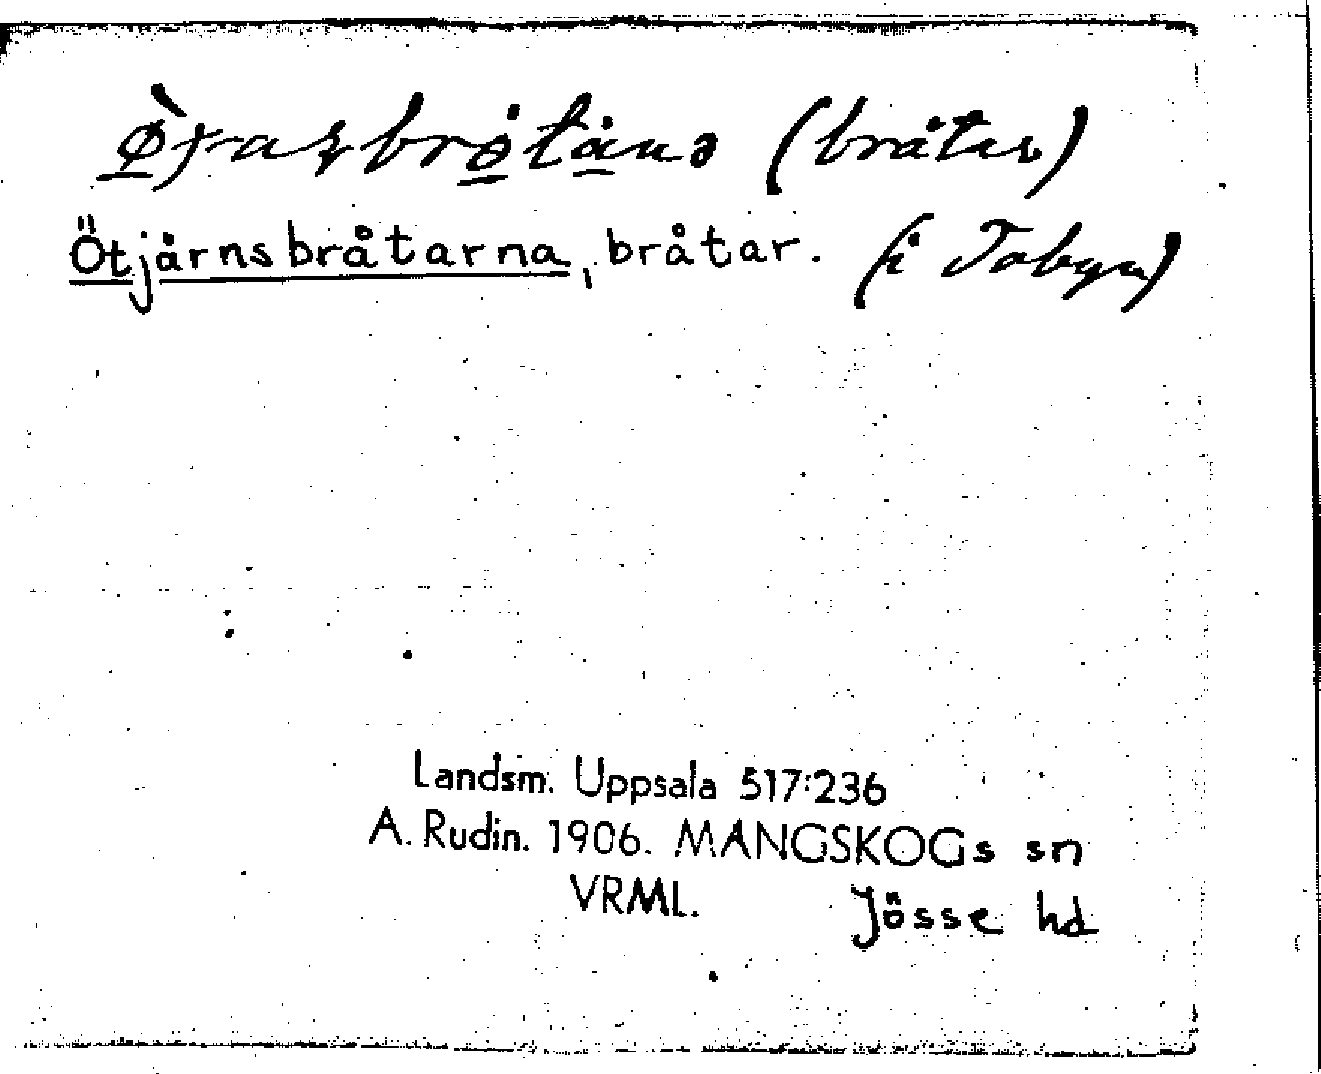 (bråtar)
Ötjärnsbråtarna, bråtar. (i Tobyn)
Landsm. Uppsala 517:236
A. Rudin. 1906. MANGSKOGs sn
VRML. Jösse hd